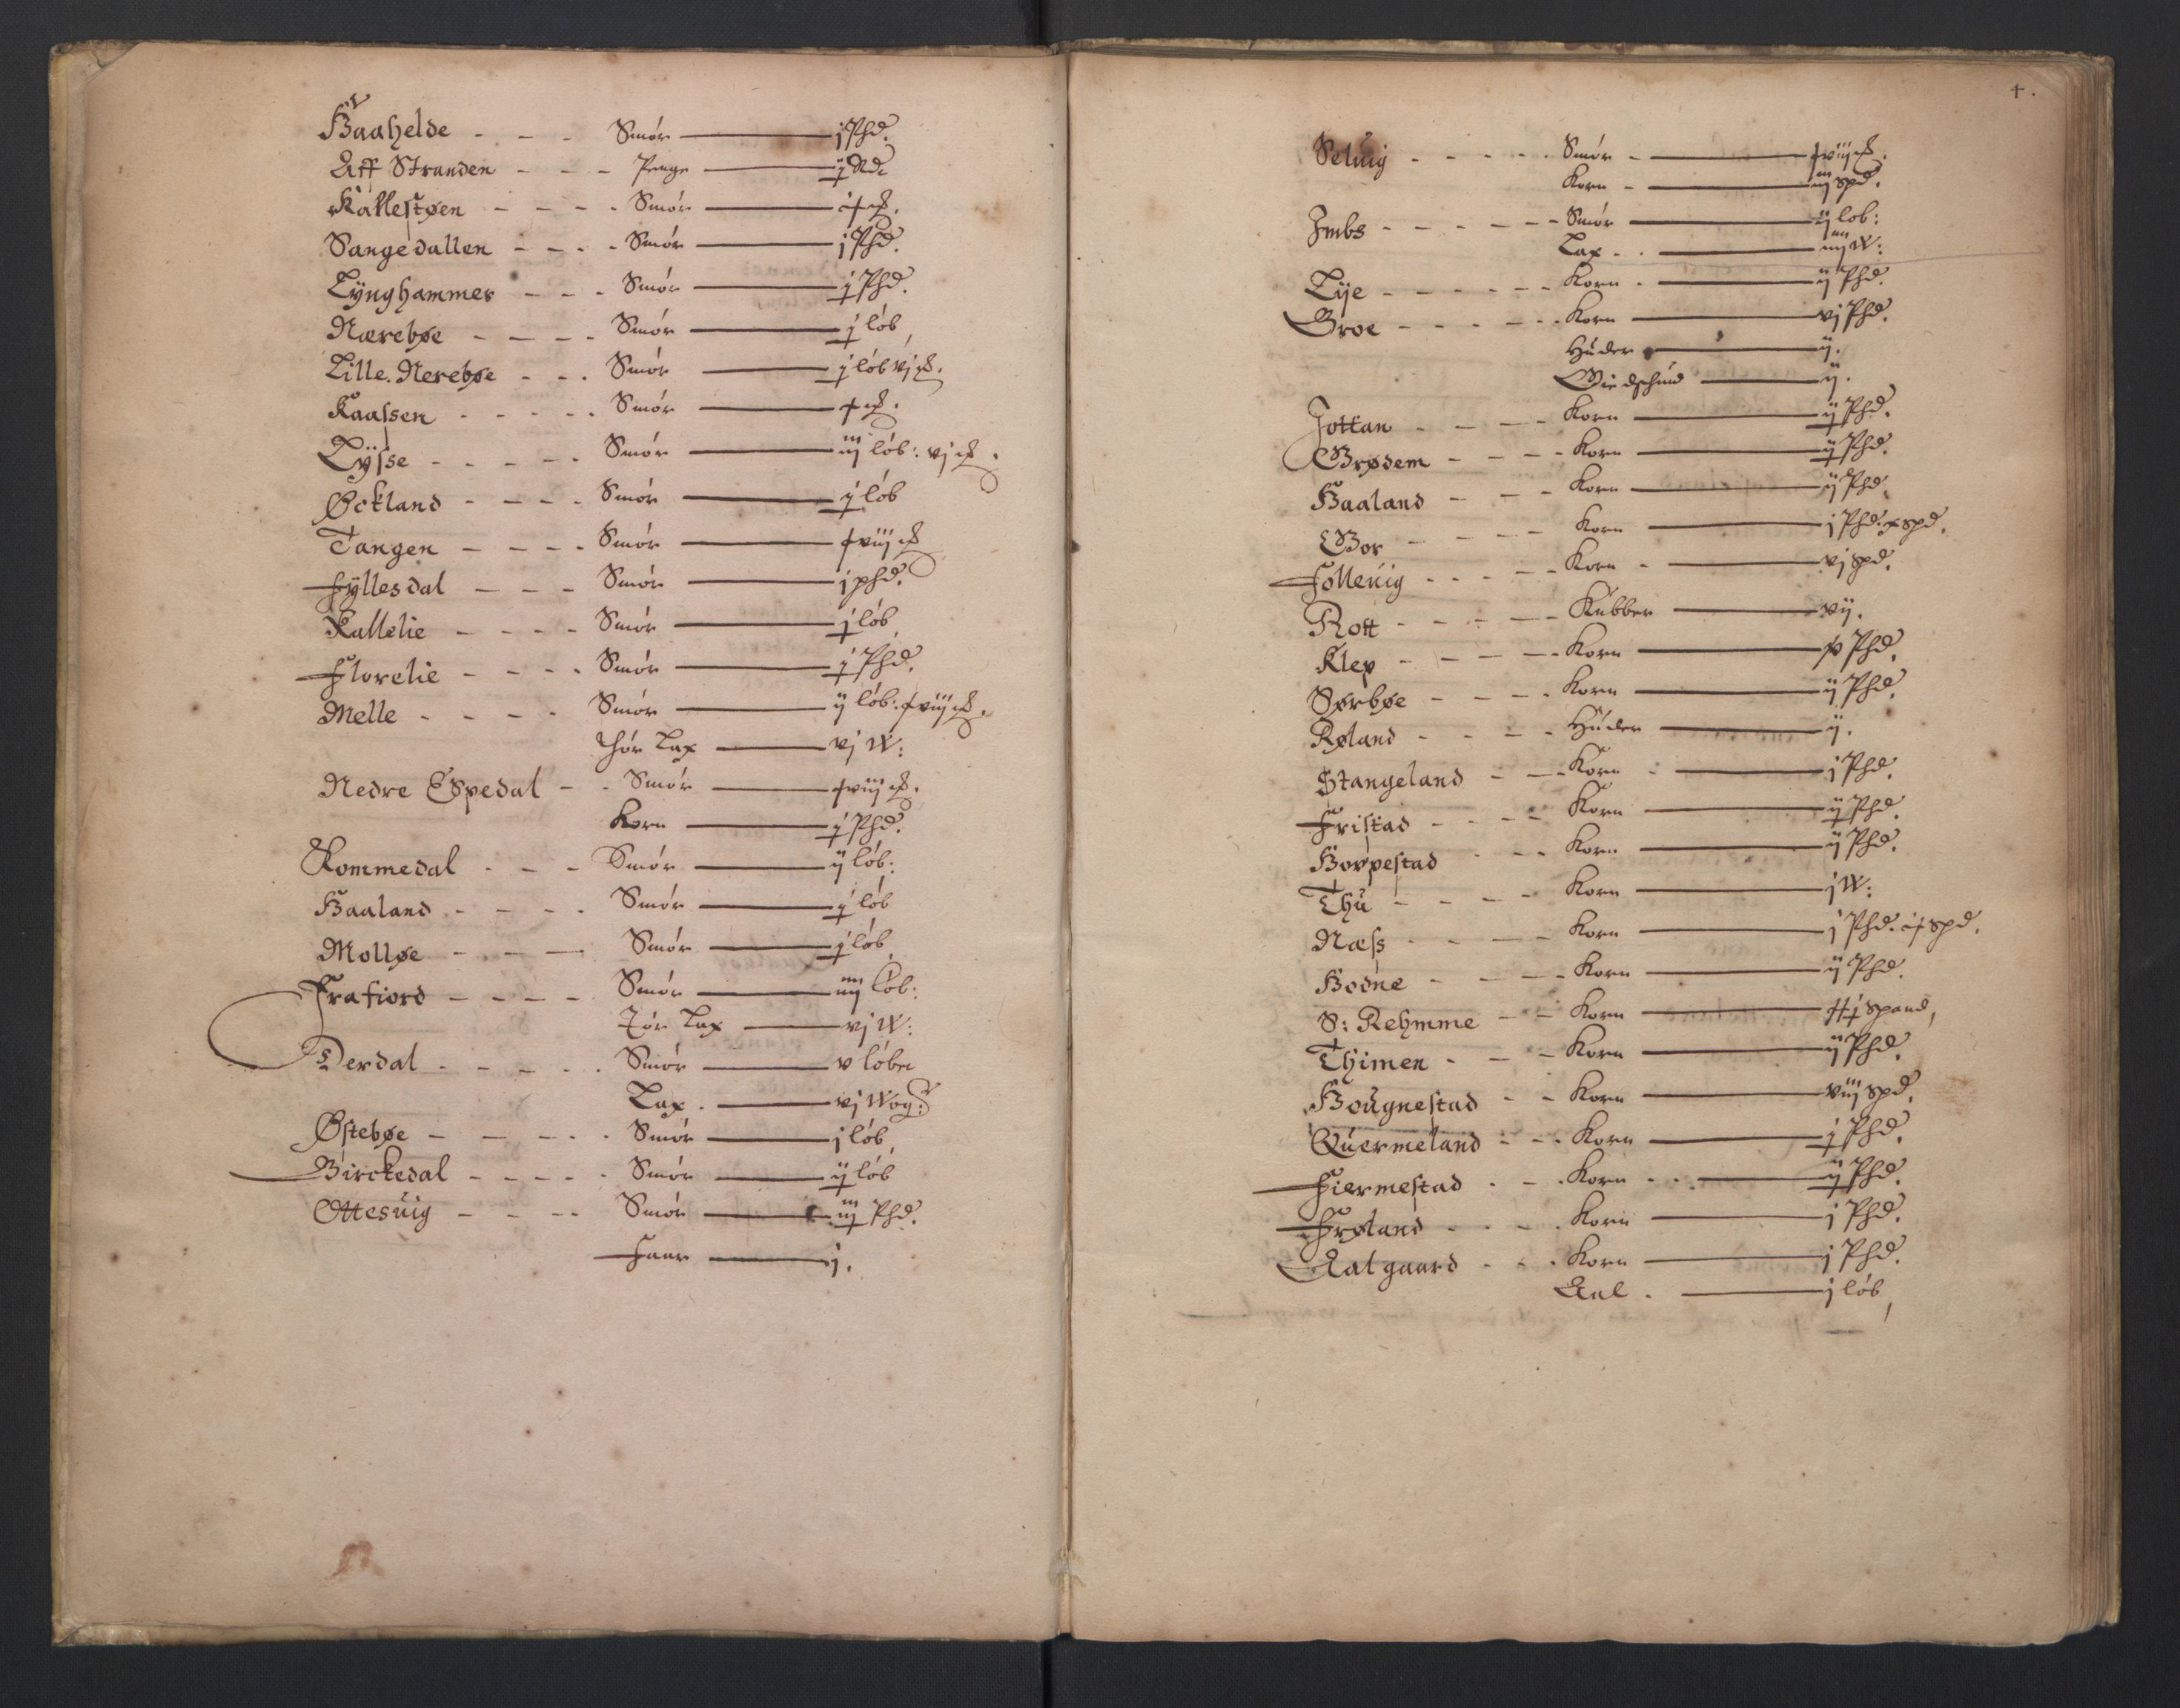 Haahelde - - - Smør — j Phd.
Aff Stranden - - - Penge — ij Rd
Kallestøen - - - - Smør
Sangedallen - - - - Smør — j Phd.
Lÿnghammer - - - Smør — j Phd.
Nærebøe - - - - Smør — j løb
Lille. Nerebøe - - - Smør — j løb vj
Kaassen - - - - - Smør
Lÿsse - - - - - Smør — iij løb: vj
Øckland - - - - Smør — j løb
Tangen - - - - Smør
Fÿllesdal - - - Smør — j phd.
Kallelie - - - - Smør — j løb
Florelie - - - - Smør — j Phd.
Melle - - - - Smør — ij løb.
Tør Lax — vj W:
Nedre Espedal - - Smør
Korn — j Phd.
Kommedal - - - Smør — ij løb:
Haaland - - - - Smør — j løb
Molløe - - - - Smør — j løb
Frafiord - - - - Smør — iiij løb:
Tør Lax — vj W:
Derdal - - - - - Smør — v løber
Lax . — vj Wog:
Østebøe - - - - - Smør — j løb
Birckedal - - - - - Smør — ij løb
Ottesuig - - - - Smør — iij Phd.
Faar — j.
4.
Seluig - - - - - Smør
Korn - — iij spd.
Jmbs - - - - - - Smør — ij løb:
Lax - . — iiij W:
Lÿe - - - - - - Korn - — ij Phd.
Groe - - - - - - Korn — vj Phd.
Huder — ij.
Giedschind — ij.
Jottan - - - - Korn — ij Phd.
Brødem - - - - Korn — ij Phd.
Haaland - - - Korn — ij Phd.
Bor - - - - Korn — j Phd. x spd.
Folleuig - - - - - Korn - — vj spd.
Rott - - - - - Kubber — vij.
Klep - - - - - Korn — Phd.
Sørbøe - - - - Korn — ij Phd.
Røland - - - - Huder — ij.
Stangeland - - - Korn - — j Phd.
Fristad - - - - Korn — ij Phd.
Horpestad - - - Korn — ij Phd.
Thu - - - - Korn — j W:
Næss - - - - Korn — j Phd. spd.
Bodne - - - - - Korn — ij Phd.
S: Rehmme - - Korn — spand,
Thimen - - - Korn — ij Phd.
Hougnestad - - Korn — viij spd.
Quermeland - - - Korn — j Phd.
Fiermestad . - . Korn . . . — ij Phd.
Frøland - - - . Korn — j Phd.
Aalgaard - - . Korn — j Phd.
Aal . — j løb